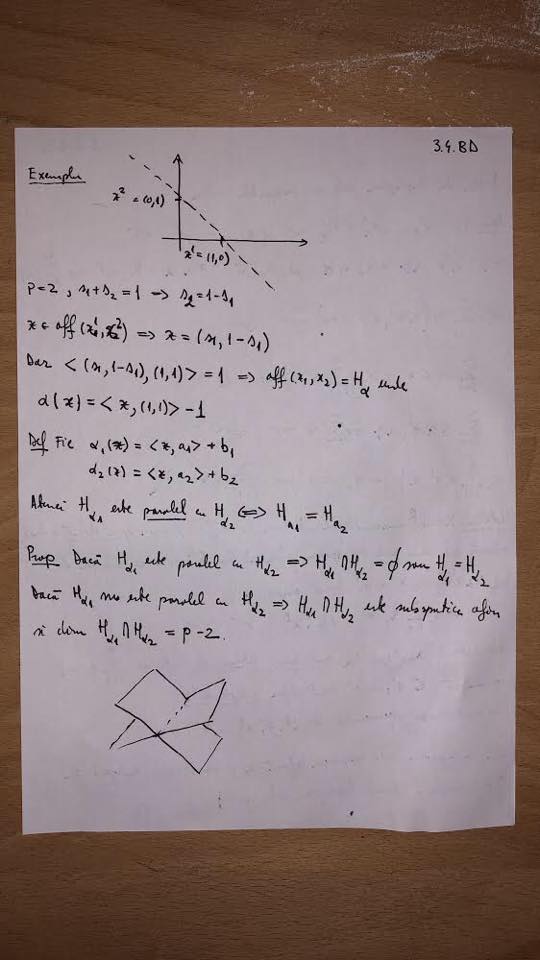 3.4.BD
Exemplu
x² = (0,1)
x¹ = (1,0)
p=2, s₁+s₂=1 => s₂=1-s₁
x ∈ aff(x¹,x²) => x = (s₁, 1-s₁)
Dar <(s₁,1-s₁),(1,1)> = 1 => aff(x₁,x₂) = H_α unde
α(x) = <x,(1,1)> -1
Def Fie α₁(x) = <x,a₁> + b₁
α₂(x) = <x,a₂> + b₂
Atunci H_α₁ este paralel cu H_α₂ <=> H_a₁ = H_a₂
Prop Dacă H_α₁ este paralel cu H_α₂ => H_α₁ ∩ H_α₂ = ϕ sau H_α₁ = H_α₂
Dacă H_α₁ nu este paralel cu H_α₂ => H_α₁ ∩ H_α₂ este subspațiu afin
și dim H_α₁ ∩ H_α₂ = p-2.